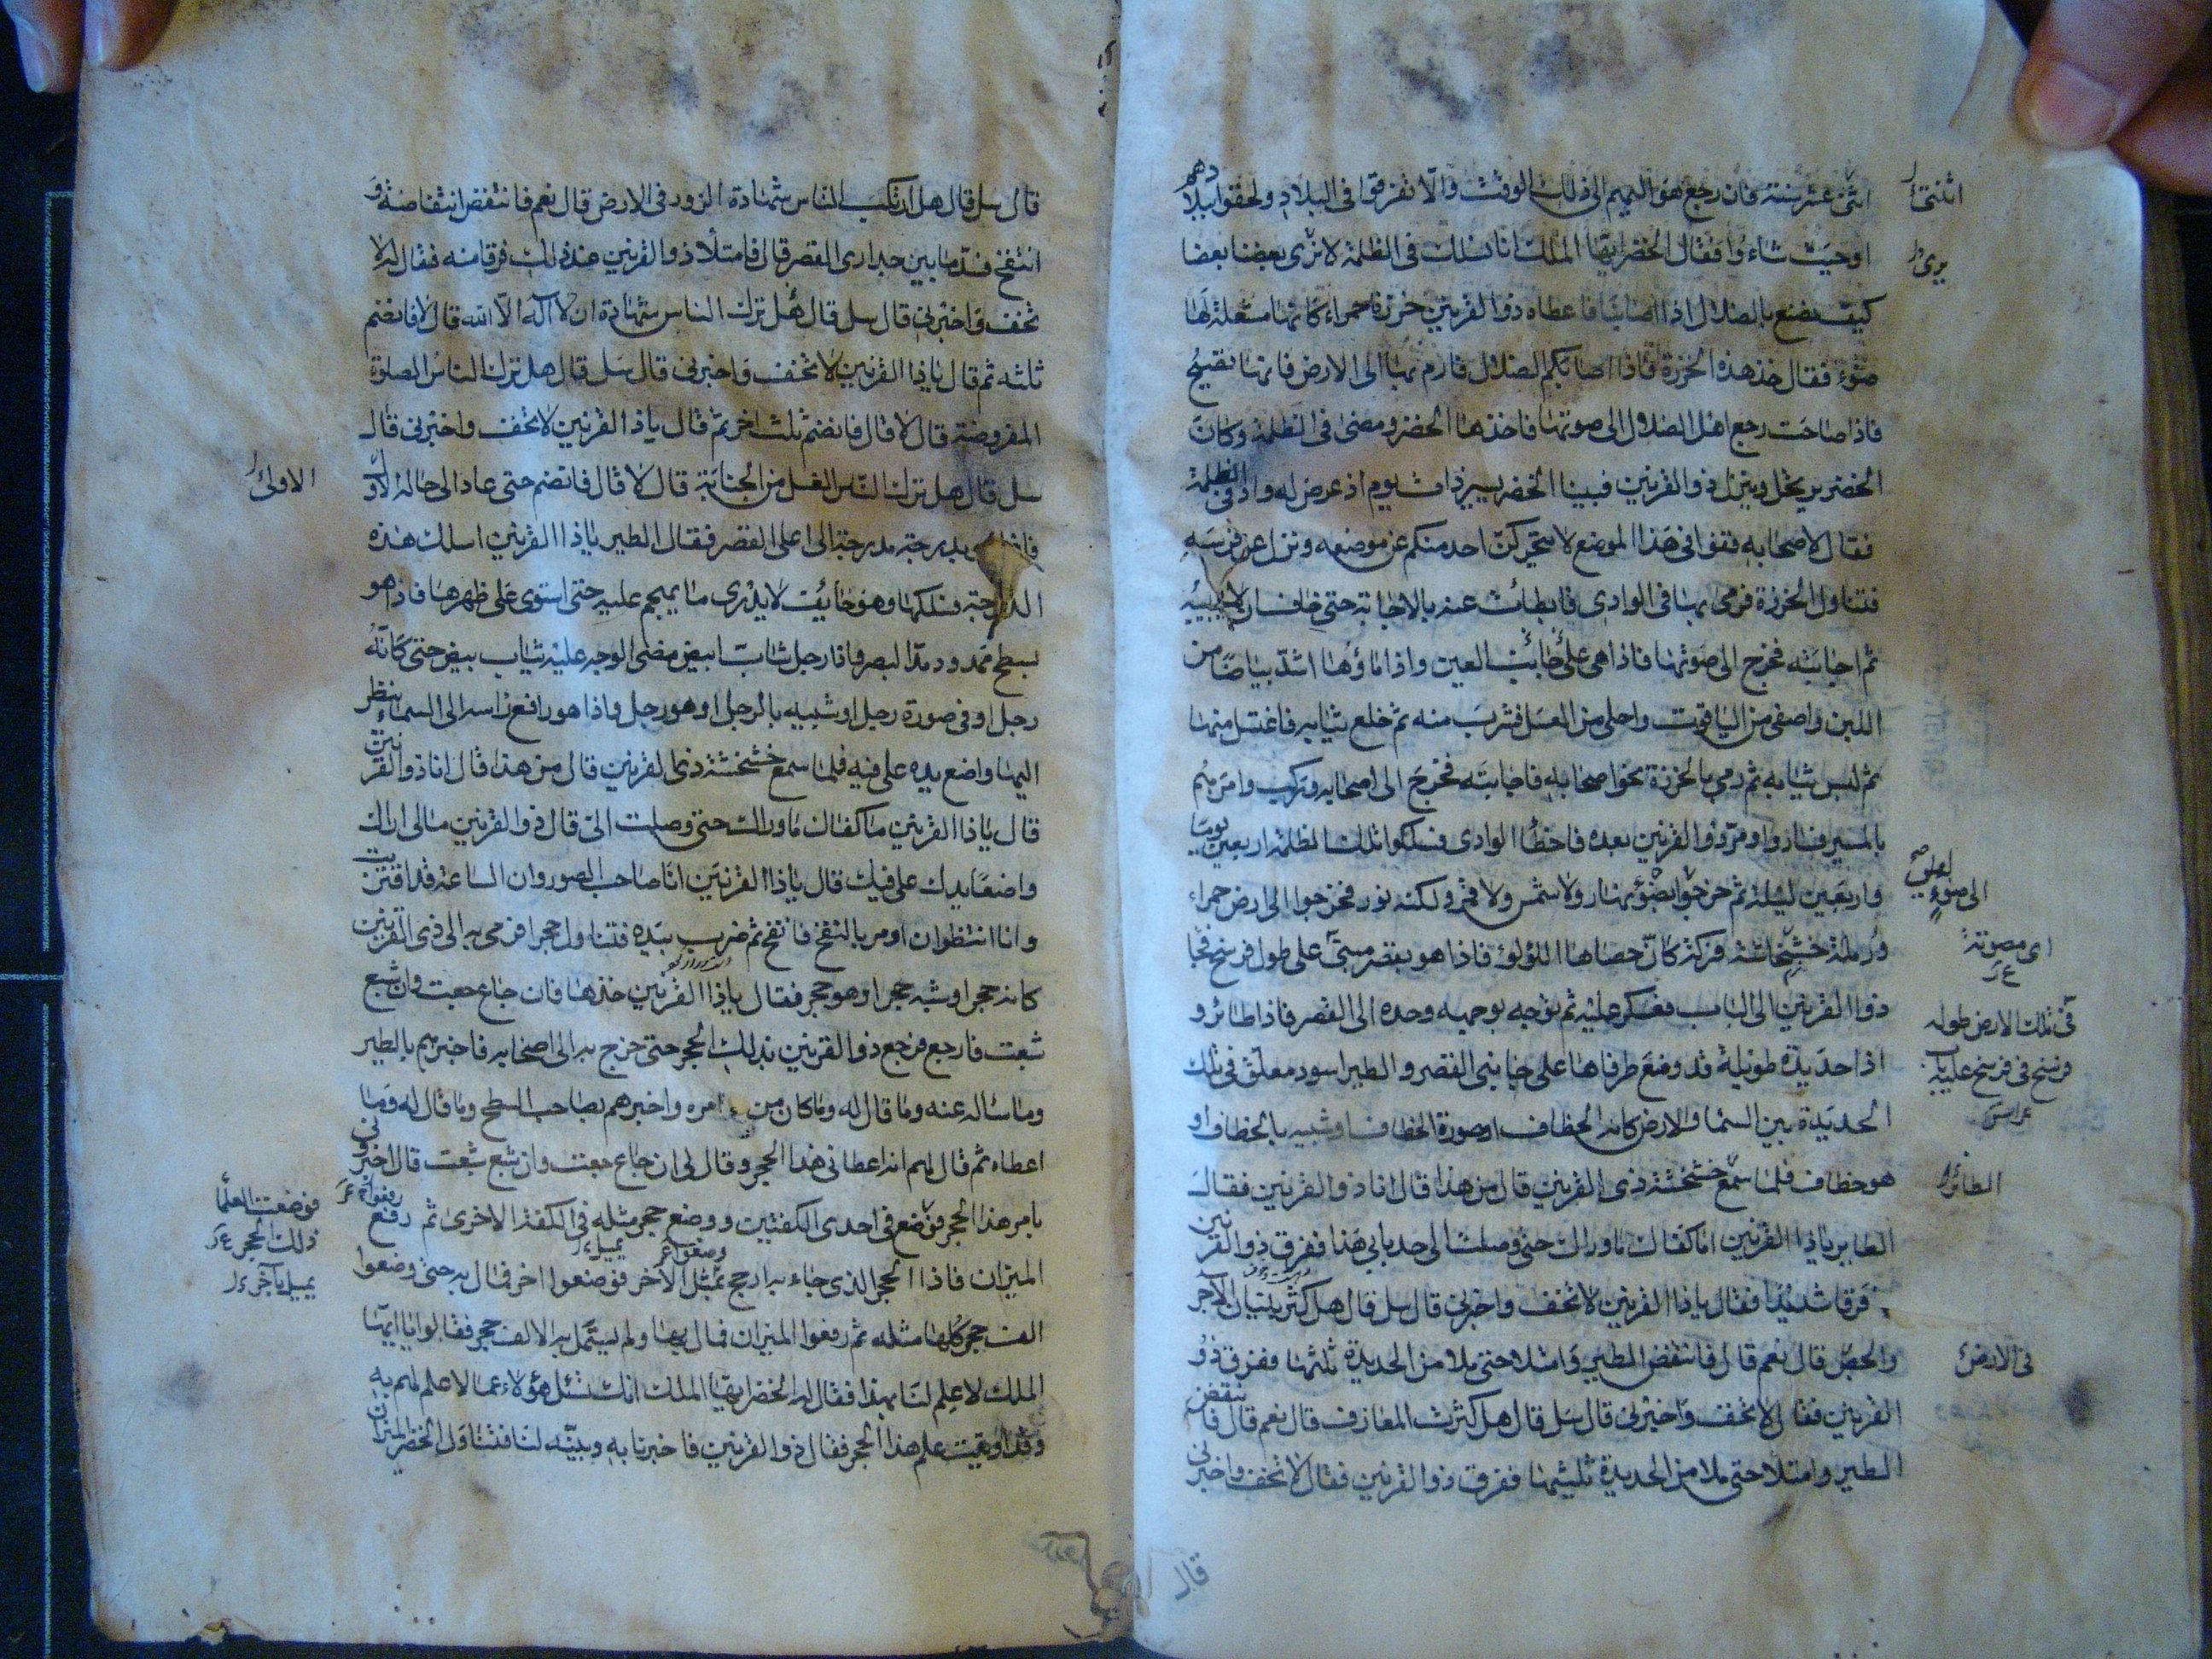 اثنتى عشر سنة فان رجع هو اليهم الى ذلك الوقت والا تفرقوا فى البلاد ولحقوا ببلادهم
او حيث شاءوا فقال الخضر ايها الملك انا نسلك فى الظلمة لا نرى بعضنا بعضا
كيف نصنع بالضلال اذا اصابنا فاعطاه ذو القرنين خرزة حمراء كانها مشعلة لها
ضوء فقال خذ هذه الخرزة فاذا اصابكم الضلال فارم بها الى الارض فانها تصيح
فاذا صاحت رجع اهل الضلال الى صوتها فاخذها الخضر ومضى فى الظلمة وكان
الخضر يرتحل وينزل ذو القرنين فبينا الخضر يسير ذات يوم اذ عرض له واد فى الظلمة
فقال لاصحابه قفوا فى هذا الموضع لا يتحركن احد منكم عن موضعه ونزل عن فرسه
فتناول الخرزة فرمى بها فى الوادى فابطأت عنه بالاجابة حتى خاف ان لا يجيبه
ثم اجابته فخرج الى صوتها فاذا هى على جانب العين واذا ماؤها اشد بياضا من
اللبن واصفى من الياقوت واحلى من العسل فشرب منه ثم خلع ثيابه فاغتسل منها
ثم لبس ثيابه ثم رمى بالخرزة نحو اصحابه فاجابته فخرج الى اصحابه وركب وامرهم
بالمسير فساروا ومر ذو القرنين بعده فاخطأ الوادى فسلكوا تلك الظلمة اربعين يوما
واربعين ليلة ثم خرجوا بضوء نهار ولا شمس ولا قمر ولكنه نور فخرجوا الى ارض حمراء
ورملة خشخاشة فركة كان حصاها اللؤلؤ فاذا هو بقصر مبنى على طول فرسخ فجا
ذو القرنين الى الباب فعسكر عليه ثم توجه بوجهه وحده الى القصر فاذا طائر و
اذا حديدة طويلة قد وضع طرفاها على جانبى القصر والطير اسود معلق فى تلك
الحديدة بين السما والارض كانه الخطاف او صورة الخطاف او شبيه بالخطاف او
هو خطاف فلما سمع خشخشة ذى القرنين قال من هذا قال انا ذو القرنين فقال
الطاير يا ذا القرنين اما كفاك ما وراك حتى وصلت الى حد بابى هذا ففرق ذو القرنين
فرقا شديدا فقال يا ذا القرنين لا تخف واخبرنى قال سل قال هل كثر بنيان الآجر
والجص قال نعم قال فانتفض الطير وامتلا حتى ملا من الحديدة ثلثها ففرق ذو
القرنين فقال لا تخف واخبرنى قال سل قال هل كثرت المعازف قال نعم قال فانتفض
الطير وامتلا حتى ملا من الحديدة ثلثيها ففرق ذو القرنين فقال لا تخف واخبرنى
قال
اثنتى
يرى
الى ضوء
اى مصوتة
فى تلك الارض طوله
فرسخ فى فرسخ عليه باب
الطائر
فى الارض
قال سل قال هل ارتكب الناس شهادة الزور فى الارض قال نعم فانتفض انتفاضة و
انتفخ فسد ما بين جدارى القصر قال فامتلا ذو القرنين عند ذلك فرقا منه فقال له لا
تخف واخبرنى قال سل قال هل ترك الناس شهادة ان لا اله الا الله قال لا فانضم
ثلثه ثم قال يا ذا القرنين لا تخف واخبرنى قال سل قال هل ترك الناس الصلوة
المفروضة قال لا قال فانضم ثلث اخر ثم قال يا ذا القرنين لا تخف واخبرنى قال
سل قال هل ترك الناس الغسل من الجنابة قال لا قال فانضم حتى عاد الى حاله الاول
بدرجة مدرجة الى اعلى القصر فقال الطير يا ذا القرنين اسلك هذه
الدرجة فسلكها وهو خايف لا يدرى ما يهجم عليه حتى استوى على ظهرها فاذا هو
بسطح ممدود مد البصر فاذا رجل شاب ابيض مضى الوجه عليه ثياب بيض حتى كانه
رجل او فى صورة رجل او شبيه بالرجل او هو رجل واذا هو رافع راسه الى السماء ينظر
اليها واضع يده على فيه فلما سمع خشخشة ذى القرنين قال من هذا قال انا ذو القرنين
قال يا ذا القرنين ما كفاك ما وراك حتى وصلت الى قال ذو القرنين ما لى اراك
واضعا يدك على فيك قال يا ذا القرنين انا صاحب الصور وان الساعة قد اقتربت
وانا انتظر ان اومر بالنفخ فانفخ ثم ضرب بيده فتناول حجرا فرمى به الى ذى القرنين
كانه حجر او شبه حجر او هو حجر فقال يا ذا القرنين خذها فان جاع جعت وان شبع
شبعت فارجع فرجع ذو القرنين بذلك الحجر حتى خرج به الى اصحابه فاخبرهم بالطير
وما ساله عنه وما قال له وما كان من امره واخبرهم بصاحب السطح وما قال له وما
اعطاه ثم قال لهم انه اعطانى هذا الحجر وقال لى ان جاع جعت وان شبع شبعت قال اخبرونى
بامر هذا الحجر فوضع فى احدى الكفتين ووضع حجر مثله فى الكفة الاخرى ثم رفع
الميزان فاذا الحجر الذى جاء به ارجح بمثل الآخر فوضعوا اخر فمال به حتى وضعوا
الف حجر كلها مثله ثم رفعوا الميزان فمال بها ولم يستمل به الالف حجر فقالوا يا ايها
الملك لا علم لنا بهذا فقال له الخضر ايها الملك انك تسئل هؤلاء عما لا علم لهم به
وقد اوتيت علم هذا الحجر فقال ذو القرنين فاخبرنا به وبينه لنا فتناول الخضر الميزان
الاولى
فوضعت العلما
ذلك الحجر
يميل بآخر